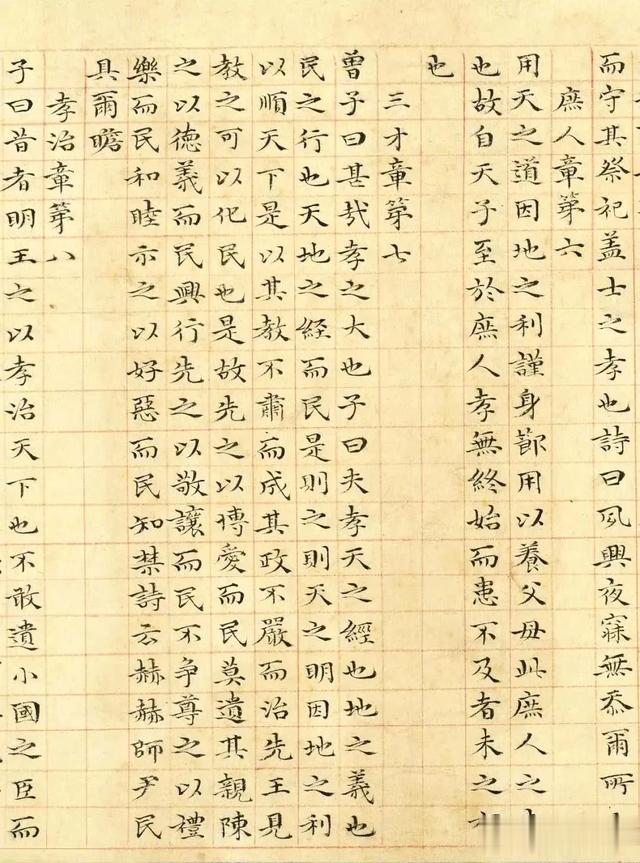 而守其祭祀盖士之孝也詩曰夙興夜寐無忝爾所
庶人章第六
用天之道因地之利謹身節用以養父母此庶人之
也故自天子至於庶人孝無終始而患不及者未之
也
三才章第七
曾子曰甚哉孝之大也子曰夫孝天之經也地之義也
民之行也天地之經而民是則之則天之明因地之利
以順天下是以其教不肅而成其政不嚴而治先王見
教之可以化民也是故先之以博愛而民莫遺其親陳
之以德義而民興行先之以敬讓而民不争尊之以禮
樂而民和睦示之以好惡而民知禁詩云赫赫師尹民
具爾瞻
孝治章第八
子曰昔者明王之以孝治天下也不敢遺小國之臣而